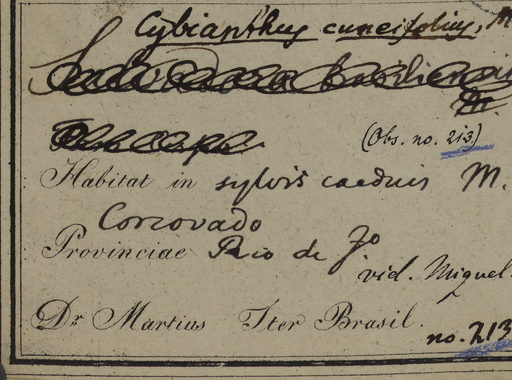 Cybianthus cuneifolius, M
(Obs. no. 213)
Habitat in sylvis caeduis M.
Corcovado
Provinciae Rio de Jo
vid. Miquel.
Dr. Martius Iter Brasil.
no. 213